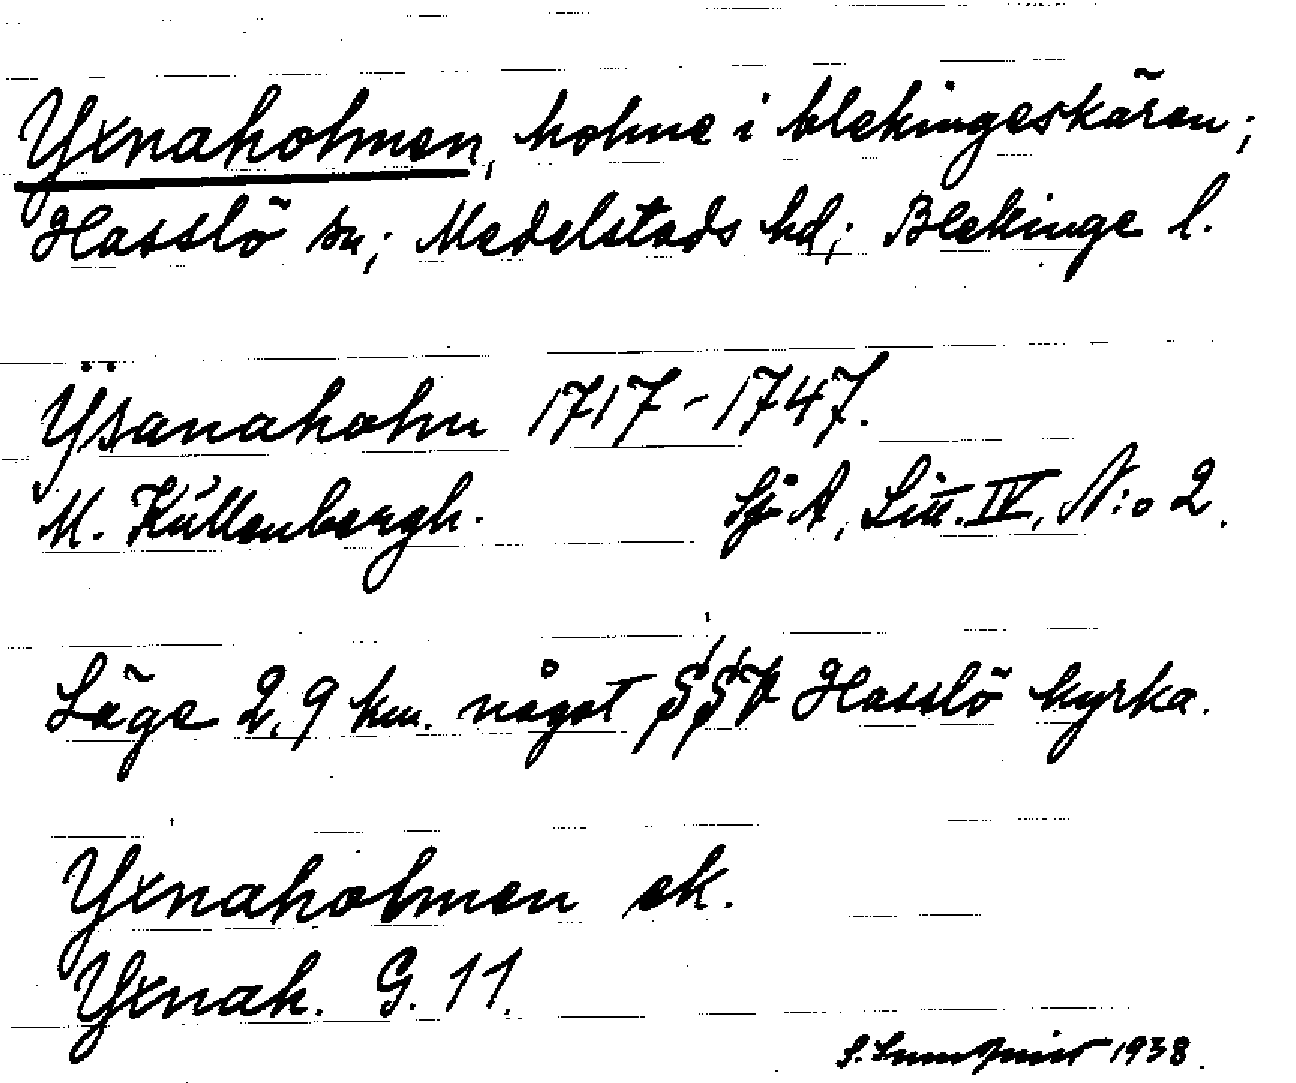 Yxnaholmen, holme i blekingeskären;
Hasslö sn; Medelstads hd; Blekinge l.
Ÿsanaholm 1717-1747.
M. Küllenbergh. Sjö A, Litt. IV, N:o 2.
Läge 2,9 km. något SSV Hasslö kyrka.
Yxnaholmen ek.
Yxnah. G. 11.
S. 1938.